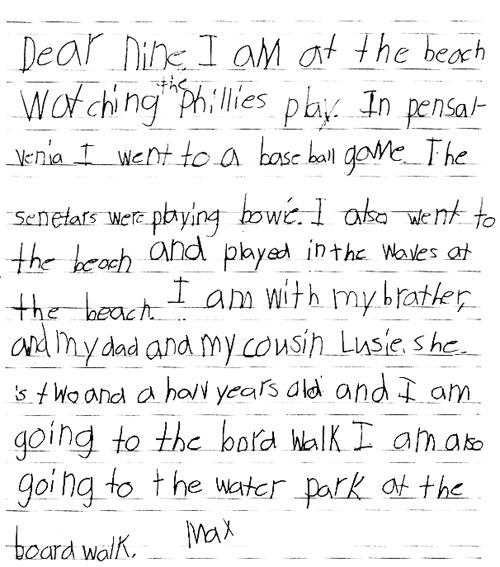 Dear Nine I am at the beach
Watching the phillies play. In pensal-
venia I went to a base ball game The
senetars were playing bowie. I also went to
the beach and played in the waves at
the beach. I am with my brather,
and my dad and my cousin Lusie. she
is two and a halv years old and I am
going to the bord walk I am also
going to the water park at the
board walk. Max